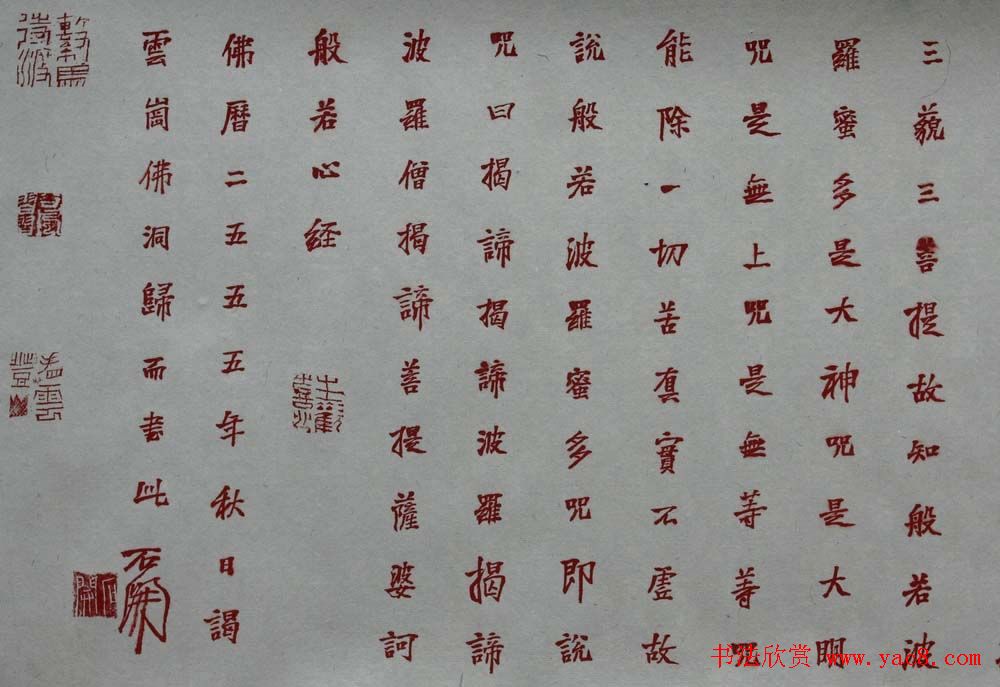 三藐三菩提故知般若波
羅蜜多是大神呪是大明
呪是無上呪是無等等呪
能除一切苦真實不虛故
說般若波羅蜜多呪即說
呪曰揭諦揭諦波羅揭諦
波羅僧揭諦菩提薩婆訶
般若心経
佛曆二五五五年秋日謁
雲崗佛洞歸而書此
石開
书法欣赏 www.yac8.com